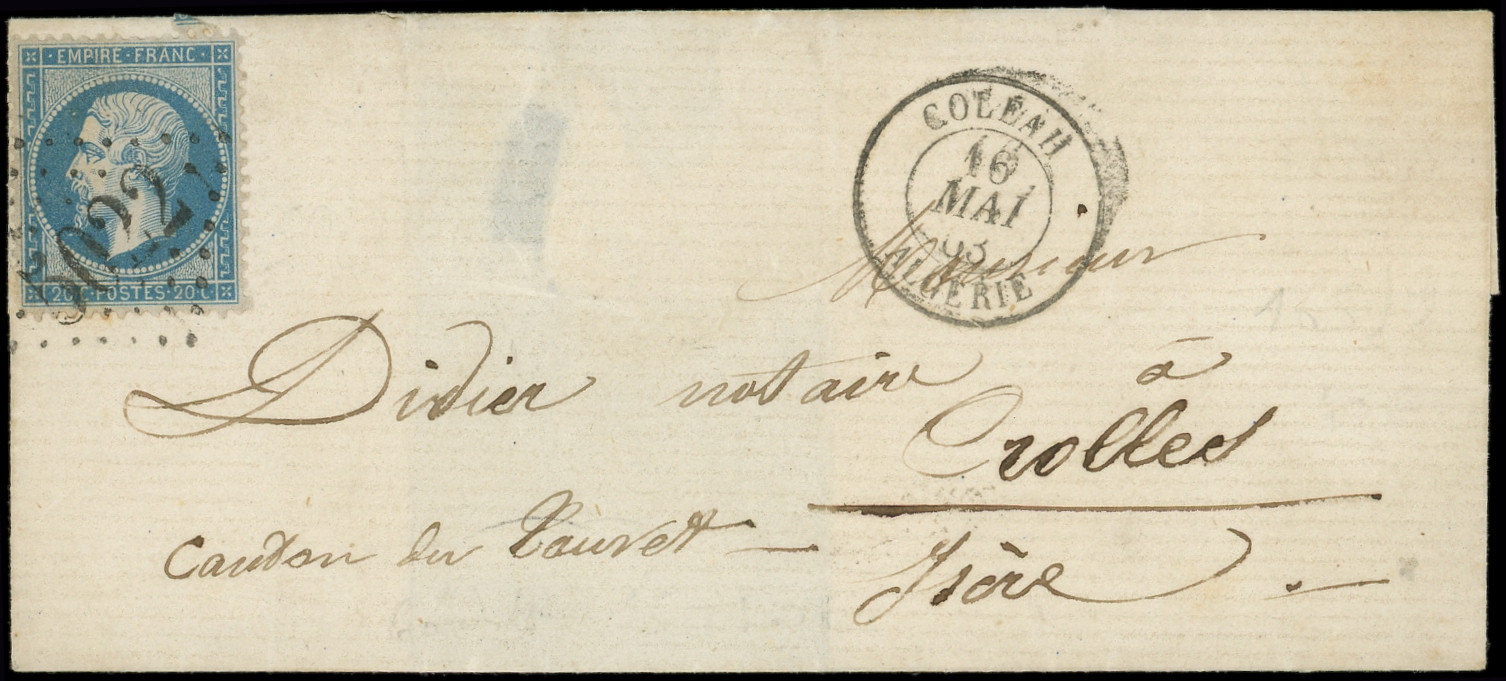 EMPIRE·FRANC
20 C·POSTES·20 C
5022
COLÉAH
16
MAI
63
ALGÉRIE
Monsieur
Didier notaire à
Crolles
canton du Touvet
Isère